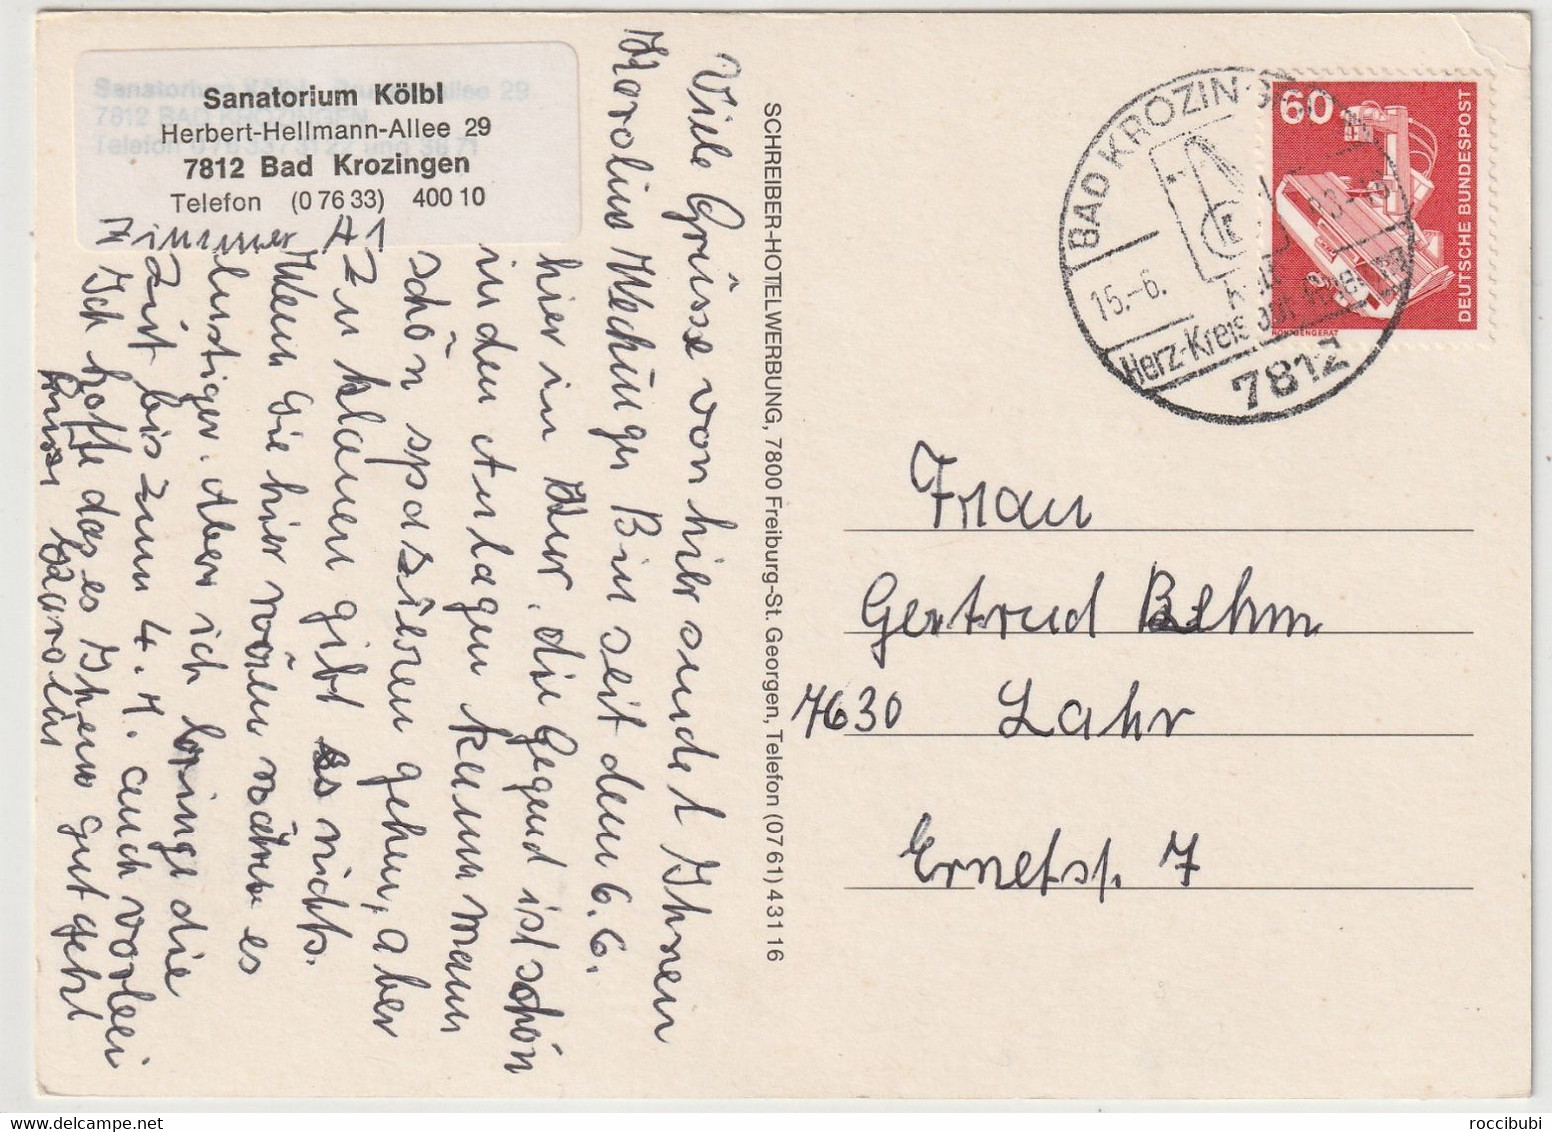 Sanatorium Kölbl
Herbert-Hellmann-Allee 29
7812 Bad Krozingen
Telefon (0 76 33) 400 10
Zimmer A1
Viele Grüsse von hier sendet Ihnen
Karolina Bin seit dem 6.6.
hier in Kur. die Gegend ist schön
in den Anlagen kann mann
schön spaszieren gehen, aber
Zu klauen gibt es nichts.
Wenn Sie hier wären wäre es
lustiger. Aber ich bringe die
Zeit bis zum 4. 7. auch vorbei
Ich hoffe das es Ihnen gut geht
SCHREIBER-HOTELWERBUNG, 7800 Freiburg-St. Georgen, Telefon (0761) 43116
BAD KROZINGEN
15.-6.
Herz-Kreislauf
7812
60
DEUTSCHE BUNDESPOST
RÖNTGENGERÄT
Frau
Gertrud Behm
7630 Lahr
Ernetsp. 7
roccibubi